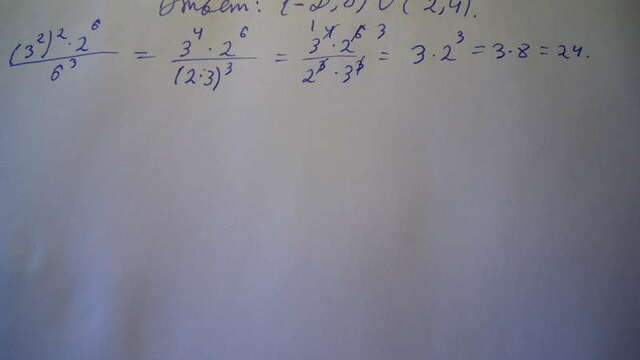 Ответ: (-∞, 0) ∪ (2,4).
(3²)² · 2⁶ / 6³ = 3⁴ · 2⁶ / (2·3)³ = 3⁴ · 2⁶ / 2³ · 3³ = 3 · 2³ = 3·8 = 24.